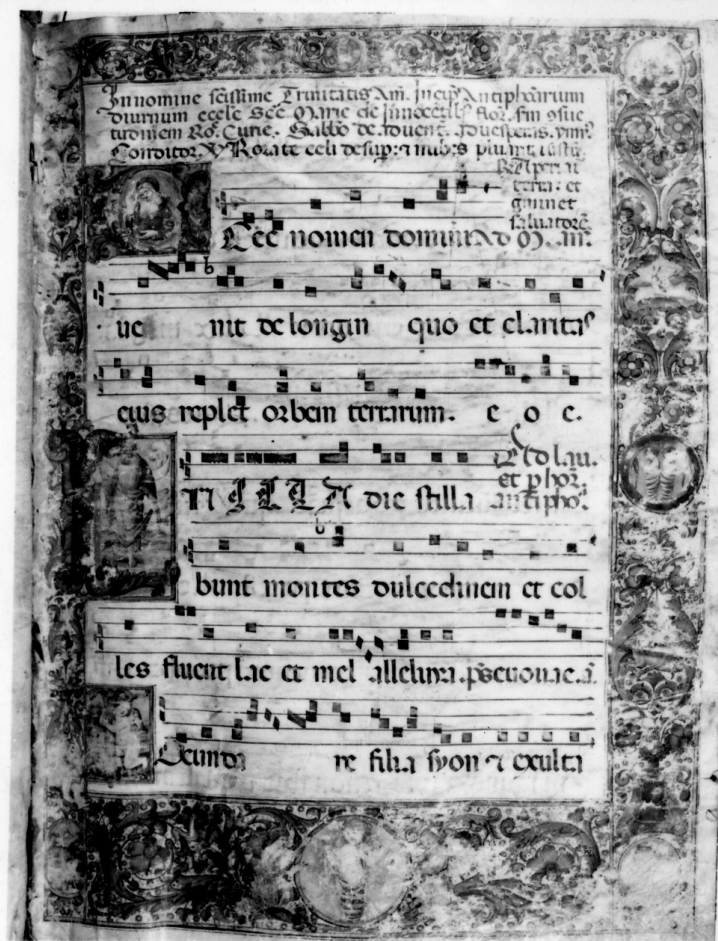 In nomine scissime Trinitatis Am. Incip Antiphariū
diurnum eccle Sce Marie de Innocetib flor. sm 9sue
tudinem Ro. Curie. Sabbo de aduent. ad uesperas. ymn.
Conditor. V Rorate celi desup: et nubes pluant iustū.
terra: et
gminet
saluatorē
Ecce nomen domini Ad M. an.
ue nit de longin quo et claritas
eius replet orbem terrarum. e o e.
Ad lau.
et p hor.
antipho.
N ILLA die stilla
bunt montes dulcedinem et col
les fluent lac et mel alleluya. ps euouae. a
Iocunda re filia syon et exulta